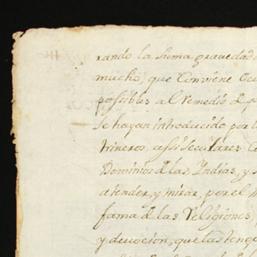 rando la suma gravedad
mucho, que conviene
possibles al remedio
se hayan introducido por
assi seculares
Dominios de las Indias, y
atender, y mirar, por el
fama de las Religiones,
y devocion, que las